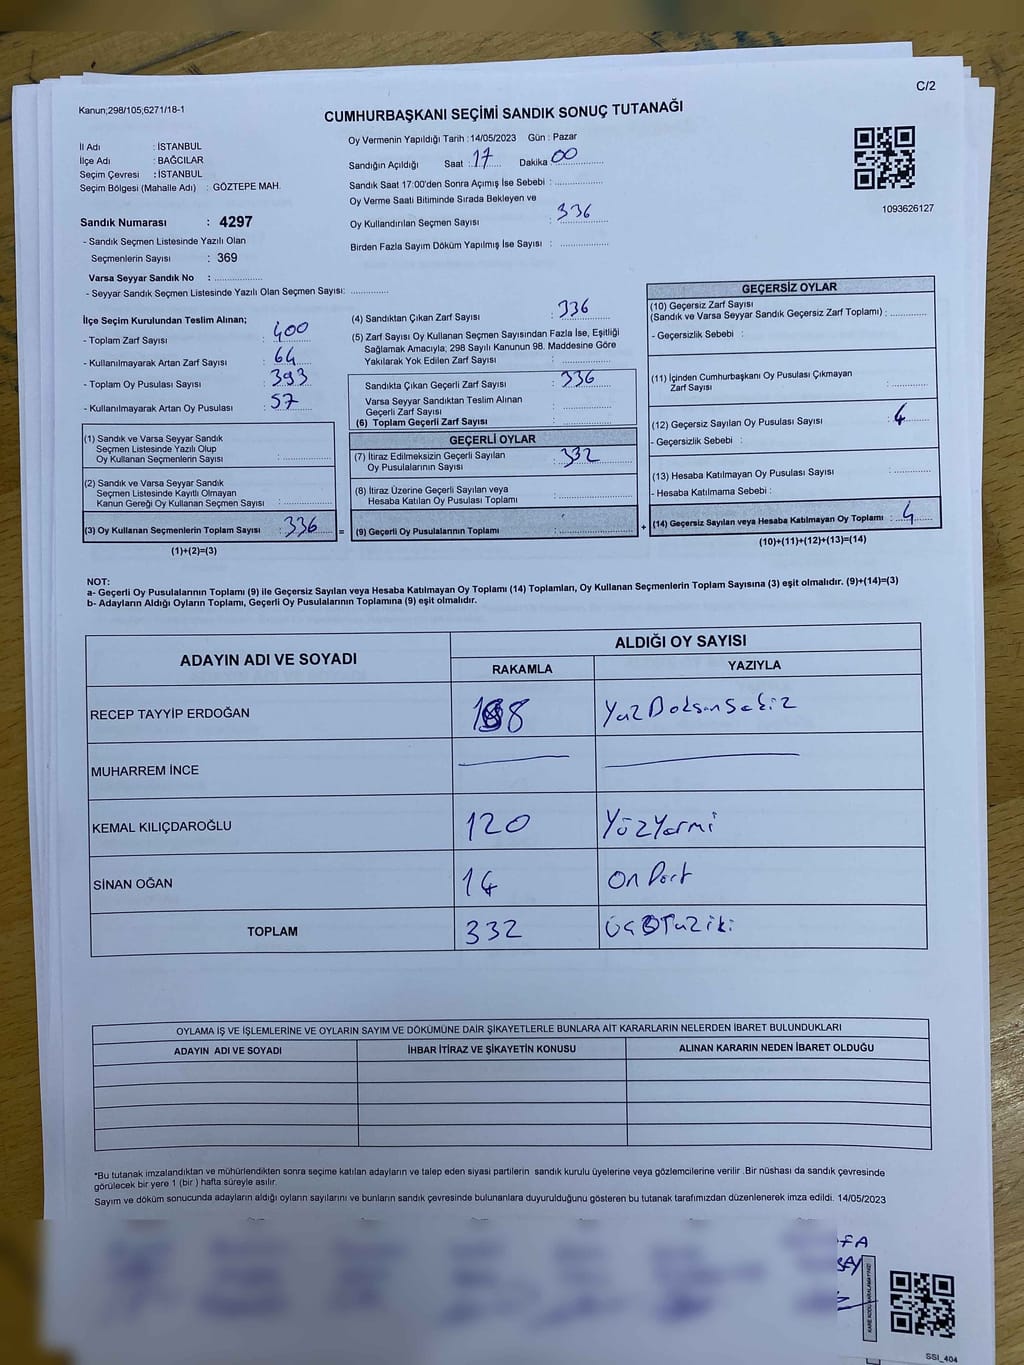 C/2
Kanun;298/105;6271/18-1
CUMHURBAŞKANI SEÇİMİ SANDIK SONUÇ TUTANAĞI
İl Adı : İSTANBUL
İlçe Adı : BAĞCILAR
Seçim Çevresi : İSTANBUL
Seçim Bölgesi (Mahalle Adı) : GÖZTEPE MAH.
Sandık Numarası : 4297
- Sandık Seçmen Listesinde Yazılı Olan
Seçmenlerin Sayısı : 369
Varsa Seyyar Sandık No : ................
- Seyyar Sandık Seçmen Listesinde Yazılı Olan Seçmen Sayısı: ............
Oy Vermenin Yapıldığı Tarih :14/05/2023 Gün : Pazar
Sandığın Açıldığı Saat : 17 Dakika 00
Sandık Saat 17:00'den Sonra Açımış İse Sebebi : ................
Oy Verme Saati Bitiminde Sırada Bekleyen ve
Oy Kullandırılan Seçmen Sayısı : 336
Birden Fazla Sayım Döküm Yapılmış İse Sayısı : ................
1093626127
İlçe Seçim Kurulundan Teslim Alınan;
- Toplam Zarf Sayısı : 400
- Kullanılmayarak Artan Zarf Sayısı : 64
- Toplam Oy Pusulası Sayısı : 393
- Kullanılmayarak Artan Oy Pusulası : 57
(1) Sandık ve Varsa Seyyar Sandık
Seçmen Listesinde Yazılı Olup
Oy Kullanan Seçmenlerin Sayısı : ................
(2) Sandık ve Varsa Seyyar Sandık
Seçmen Listesinde Kayıtlı Olmayan
Kanun Gereği Oy Kullanan Seçmen Sayısı : ................
(3) Oy Kullanan Seçmenlerin Toplam Sayısı : 336
(1)+(2)=(3)
(4) Sandıktan Çıkan Zarf Sayısı : 336
(5) Zarf Sayısı Oy Kullanan Seçmen Sayısından Fazla İse, Eşitliği
Sağlamak Amacıyla; 298 Sayılı Kanunun 98. Maddesine Göre
Yakılarak Yok Edilen Zarf Sayısı : ................
Sandıkta Çıkan Geçerli Zarf Sayısı : 336
Varsa Seyyar Sandıktan Teslim Alınan
Geçerli Zarf Sayısı : ................
(6) Toplam Geçerli Zarf Sayısı : ................
GEÇERLİ OYLAR
(7) İtiraz Edilmeksizin Geçerli Sayılan
Oy Pusulalarının Sayısı : 332
(8) İtiraz Üzerine Geçerli Sayılan veya
Hesaba Katılan Oy Pusulası Toplamı : ................
= (9) Geçerli Oy Pusulalarının Toplamı : ................ +
GEÇERSİZ OYLAR
(10) Geçersiz Zarf Sayısı
(Sandık ve Varsa Seyyar Sandık Geçersiz Zarf Toplamı) : ............
- Geçersizlik Sebebi :
(11) İçinden Cumhurbaşkanı Oy Pusulası Çıkmayan
Zarf Sayısı : ............
(12) Geçersiz Sayılan Oy Pusulası Sayısı : 4
- Geçersizlik Sebebi :
(13) Hesaba Katılmayan Oy Pusulası Sayısı : ............
- Hesaba Katılmama Sebebi :
(14) Geçersiz Sayılan veya Hesaba Katılmayan Oy Toplamı : 4
(10)+(11)+(12)+(13)=(14)
NOT:
a- Geçerli Oy Pusulalarının Toplamı (9) ile Geçersiz Sayılan veya Hesaba Katılmayan Oy Toplamı (14) Toplamları, Oy Kullanan Seçmenlerin Toplam Sayısına (3) eşit olmalıdır. (9)+(14)=(3)
b- Adayların Aldığı Oyların Toplamı, Geçerli Oy Pusulalarının Toplamına (9) eşit olmalıdır.
ADAYIN ADI VE SOYADI ALDIĞI OY SAYISI
RAKAMLA YAZIYLA
RECEP TAYYİP ERDOĞAN 198 YüzDoksanSekiz
MUHARREM İNCE
KEMAL KILIÇDAROĞLU 120 YüzYirmi
SİNAN OĞAN 14 OnDört
TOPLAM 332 ÜçOTuziki
OYLAMA İŞ VE İŞLEMLERİNE VE OYLARIN SAYIM VE DÖKÜMÜNE DAİR ŞİKAYETLERLE BUNLARA AİT KARARLARIN NELERDEN İBARET BULUNDUKLARI
ADAYIN ADI VE SOYADI İHBAR İTİRAZ VE ŞİKAYETİN KONUSU ALINAN KARARIN NEDEN İBARET OLDUĞU
*Bu tutanak imzalandıktan ve mühürlendikten sonra seçime katılan adayların ve talep eden siyasi partilerin sandık kurulu üyelerine veya gözlemcilerine verilir .Bir nüshası da sandık çevresinde
görülecek bir yere 1 (bir ) hafta süreyle asılır.
Sayım ve döküm sonucunda adayların aldığı oyların sayılarını ve bunların sandık çevresinde bulunanlara duyurulduğunu gösteren bu tutanak tarafımızdan düzenlenerek imza edildi. 14/05/2023
FA
SSI_404